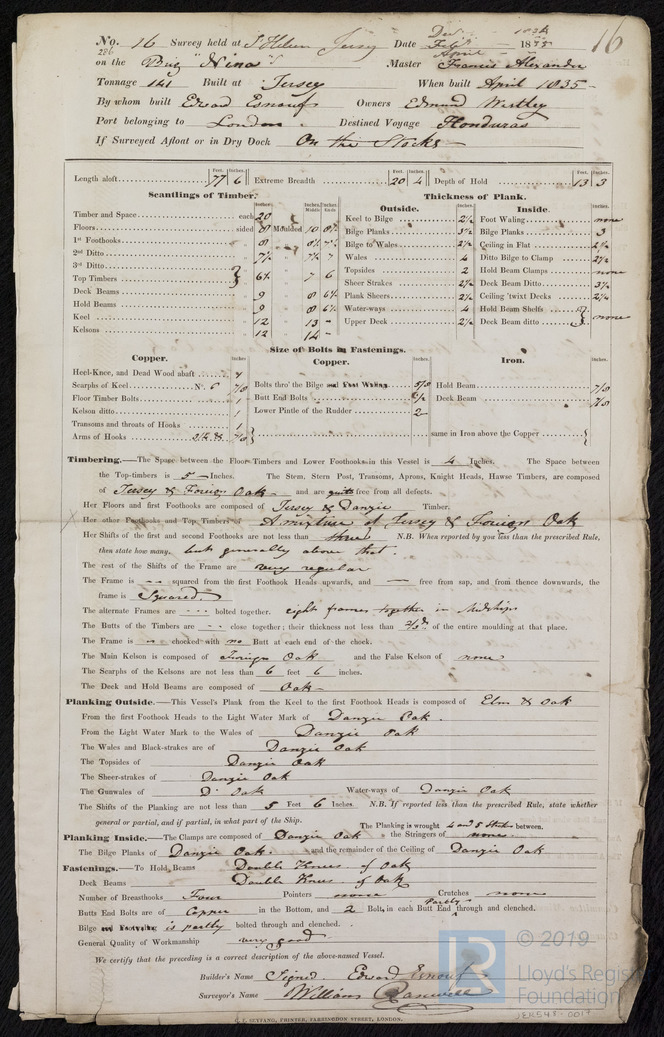 No. 16 Survey held at St Helier Jersey Date Feby 1835
16
on the Brig "Nina" Master Francis Alexandre
Tonnage 141 Built at Jersey When built April 1835
By whom built Edward Esnouf Owners Edmund
Port belonging to London Destined Voyage Honduras
If Surveyed Afloat or in Dry Dock On the Stocks
Length aloft 77 6 Extreme Breadth 20 4 Depth of Hold 13 3
Scantlings of Timber.
Timber and Space each 20
Floors sided 8 Moulded 10
1st Foothooks 8
2nd Ditto
3rd Ditto
Top Timbers 7 6
Deck Beams 9 8
Hold Beams 9 8
Keel 12 13
Kelsons 12 14
Thickness of Plank.
Outside.
Keel to Bilge 2½
Bilge Planks 3½
Bilge to Wales 2½
Wales 4
Topsides 2
Sheer Strakes
Plank Sheers 2½
Water-ways 4
Upper Deck 2½
Inside.
Foot Waling none
Bilge Planks 3
Ceiling in Flat
Ditto Bilge to Clamp
Hold Beam Clamps none
Deck Beam Ditto
Ceiling 'twixt Decks
Hold Beam Shelfs
Deck Beam ditto none
Size of Bolts in Fastenings.
Copper.
Heel-Knee, and Dead Wood abaft
Scarphs of Keel No. 6 7/8
Floor Timber Bolts 1
Kelson ditto 1
Transoms and throats of Hooks 1
Arms of Hooks
Copper.
Bolts thro' the Bilge and Foot Waling 5/8
Butt End Bolts
Lower Pintle of the Rudder 2
Iron.
Hold Beam 7/8
Deck Beam 7/8
same in Iron above the Copper
Timbering.—The Space between the Floor Timbers and Lower Foothooks in this Vessel is 4 Inches. The Space between
the Top-timbers is 5 Inches. The Stem, Stern Post, Transoms, Aprons, Knight Heads, Hawse Timbers, are composed
of Jersey & Foreign Oak and are quite free from all defects.
Her Floors and first Foothooks are composed of Jersey & Danzic Timber.
Her other Foothooks and Top Timbers of A mixture of Jersey & Foreign Oak
Her Shifts of the first and second Foothooks are not less than N.B. When reported by you less than the prescribed Rule,
then state how many. but generally above that.
The rest of the Shifts of the Frame are very regular
The Frame is squared from the first Foothook Heads upwards, and free from sap, and from thence downwards, the
frame is Squared.
The alternate Frames are bolted together. eight frames together in Midships
The Butts of the Timbers are close together; their thickness not less than of the entire moulding at that place.
The Frame is chocked with no Butt at each end of the chock.
The Main Kelson is composed of Foreign Oak and the False Kelson of none
The Scarphs of the Kelsons are not less than 6 feet 6 inches.
The Deck and Hold Beams are composed of Oak
Planking Outside.—This Vessel's Plank from the Keel to the first Foothook Heads is composed of Elm & Oak
From the first Foothook Heads to the Light Water Mark of Danzic Oak.
From the Light Water Mark to the Wales of Danzic Oak
The Wales and Black-strakes are of Danzic Oak
The Topsides of Danzic Oak
The Sheer-strakes of Danzic Oak
The Gunwales of Do Oak Water-ways of Danzic Oak
The Shifts of the Planking are not less than 5 Feet 6 Inches N.B. If reported less than the prescribed Rule, state whether
general or partial, and if partial, in what part of the Ship. The Planking is wrought 4 and 5 between.
Planking Inside.—The Clamps are composed of Danzic Oak the Stringers of none
The Bilge Planks of Danzic Oak. and the remainder of the Ceiling of Danzic Oak
Fastenings.—To Hold Beams Double Knees of Oak
Deck Beams Double Knees of Oak
Number of Breasthooks Four Pointers none Crutches none
Butts End Bolts are of Copper in the Bottom, and 2 Bolts in each Butt End Partly through and clenched.
Bilge and Footwaling is partly bolted through and clenched.
General Quality of Workmanship very good
We certify that the preceding is a correct description of the above-named Vessel.
Builder's Name Signed. Edward Esnouf
Surveyor's Name William
SEYFANG, PRINTER, FARRINGDON STREET, LONDON.
© 2019
LR
Lloyd's Register
Foundation
JER548-0017